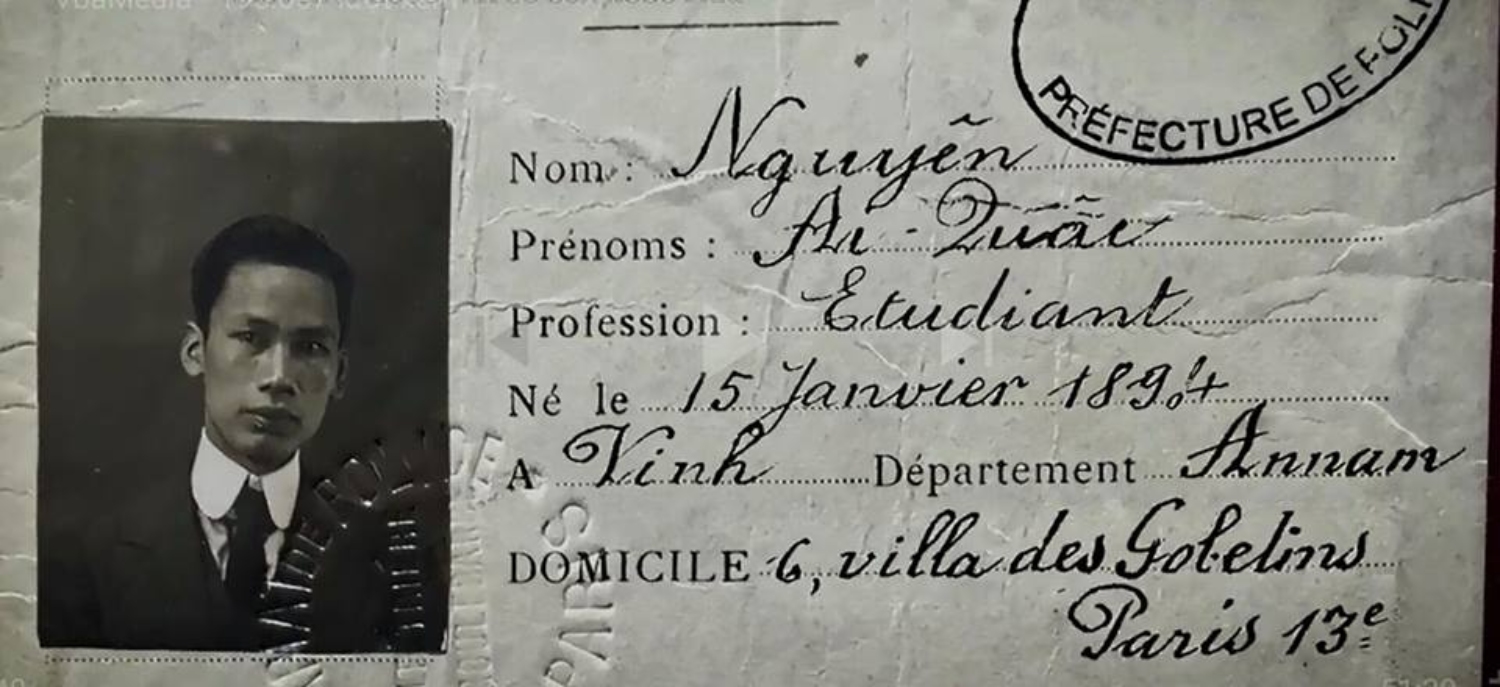 PRÉFECTURE DE POLI
Nom : Nguyễn
Prénoms : Ai-Quãc
Profession : Etudiant
Né le 15 Janvier 1894
A Vinh Département Annam
DOMICILE 6, villa des Gobelins
Paris 13e
PARIS